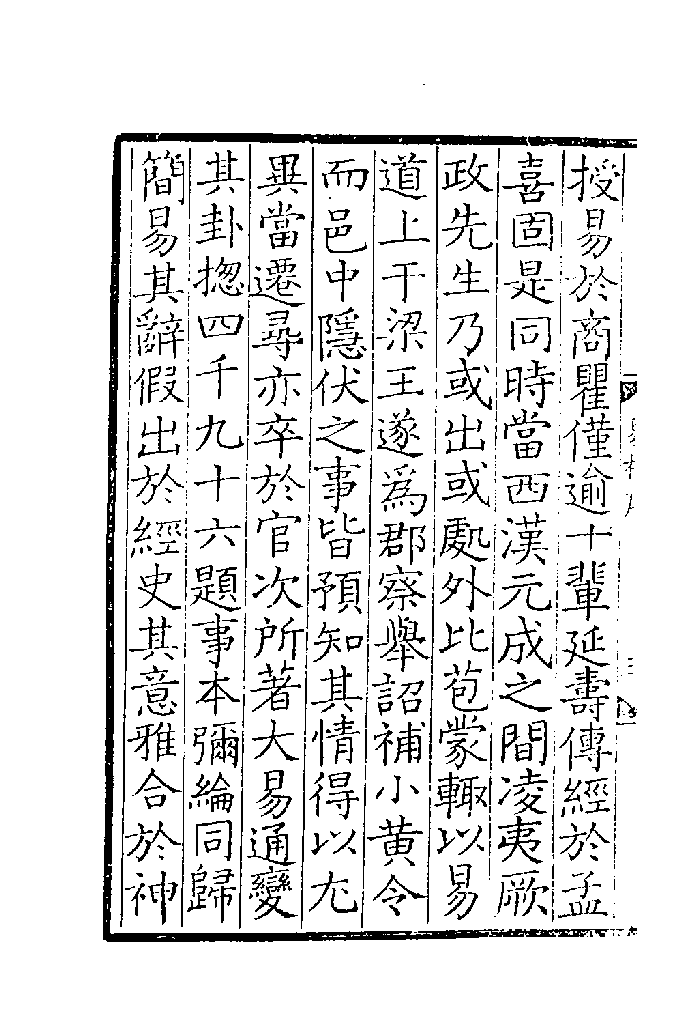 授易於商瞿僅逾十輩延壽傳經於孟
喜固是同時當西漢元成之間凌夷厥
政先生乃或出或處外比苞蒙輙以易
道上干梁王遂為郡察舉詔補小黄令
而邑中隱伏之事皆預知其情得以尤
異當遷尋亦卒於官次所著大易通變
其卦揔四千九十六題事本彌綸同歸
簡易其辭假出於經史其意雅合於神